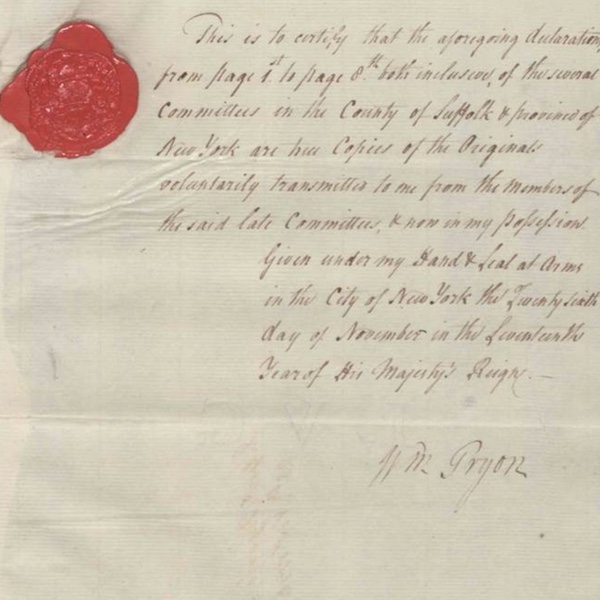 This is to certify that the aforegoing declarations
from page 1st. to page 8.th both inclusive, of the several
Committees in the County of Suffolk & province of
New York are true Copies of the Originals
voluntarily transmitted to me from the Members of
the said late Committees, & now in my possession.
Given under my Hand & Seal at Arms
in the City of New York the Twenty sixth
day of November in the Seventeenth
Year of His Majesty's Reign. —
Wm Tryon